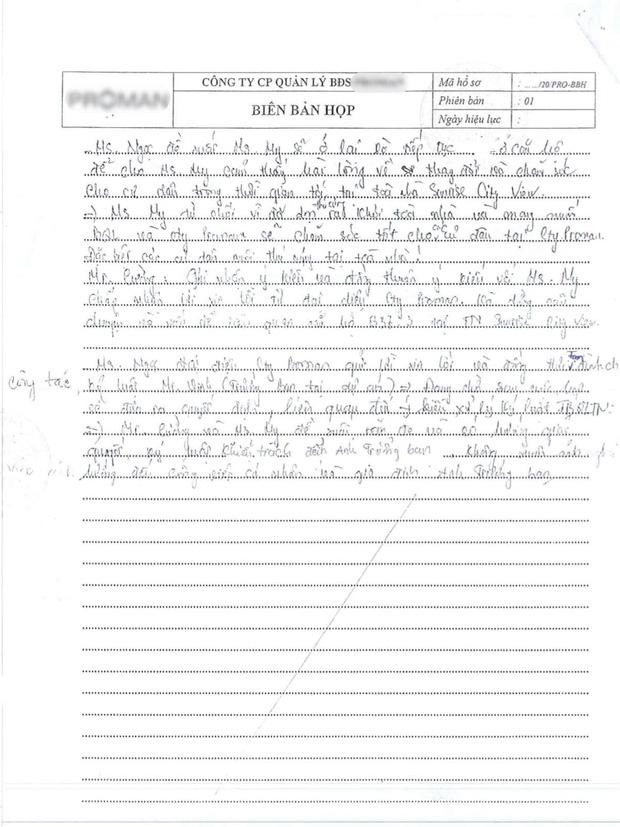 PROMAN
CÔNG TY CP QUẢN LÝ BĐS
BIÊN BẢN HỌP
Mã hồ sơ : ..../20/PRO-BBH
Phiên bản : 01
Ngày hiệu lực :
Ms. Ngọc đề xuất Ms My sẽ ở lại và tiếp tục ở căn hộ
để cho Ms My cảm thấy hài lòng về sự thay đổi và chăm sóc
cho cư dân trong thời gian tới tại toà nhà Sunrise City View.
=) Ms My từ chối vì đã dọn ra khỏi toà nhà và mong muốn
BQL và Cty Proman sẽ chăm sóc tốt cho cư dân tại Cty Proman.
Đặc biệt các cư dân nuôi thú cưng tại toà nhà!
Mr. Cường: Ghi nhận ý kiến và đồng thuận ý kiến với Ms. My
chấp nhận lời xin lỗi từ đại diện Cty Proman. Và dừng câu
chuyện và vấn đề liên quan tại TN Sunrise City View.
Ms. Ngọc đại diện Cty Proman gửi lời xin lỗi và đồng thời tạm đình chỉ
công tác, kỷ luật Mr. Vinh (Trưởng ban tại dự án) =) Đang chờ
và đưa ra quyết định, liên quan đến ý kiến xử lý kỷ luật TBQLTN.
=) Mr. Cường và Ms My đề xuất răn đe và có hướng giải
quyết, kỷ luật khiển trách đến Anh Trưởng ban Không muốn ảnh
hưởng đến công việc cá nhân và gia đình Anh Trưởng ban